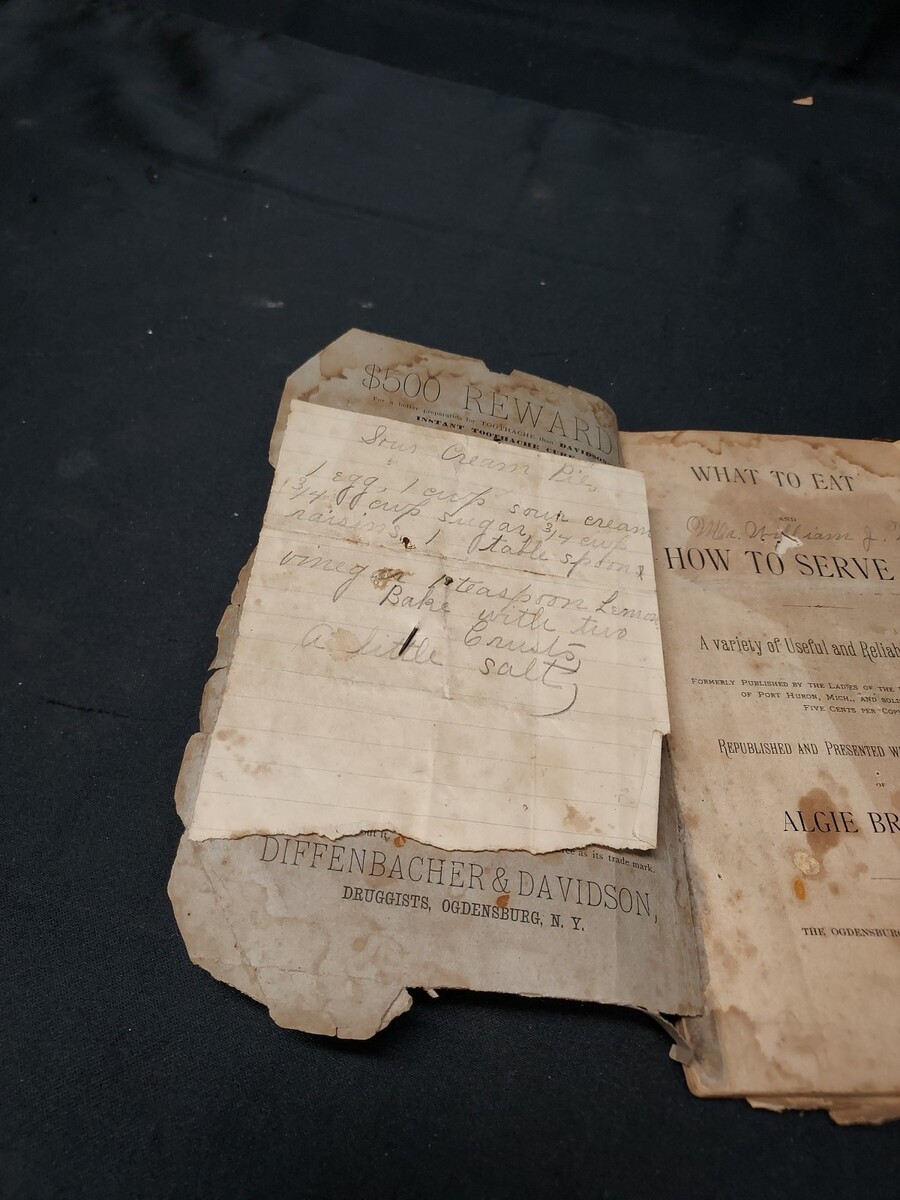 $500 REWARD
For a better preparation for TOOTHACHE than DAVIDSON
INSTANT TOOTHACHE CURE
Sour Cream Pie
1 egg, 1 cup sour cream
3/4 cup sugar, 3/4 cup
raisins, 1 table spoon
vinegar 1 teaspoon Lemon
Bake with two
Crusts
A little salt
out it,
as its trade mark.
DIFFENBACHER & DAVIDSON,
DRUGGISTS, OGDENSBURG, N. Y.
WHAT TO EAT
AND
Mrs. William J.
HOW TO SERVE
A variety of Useful and
FORMERLY PUBLISHED BY THE LADIES OF THE
OF PORT HURON, MICH., AND SOLD
FIVE CENTS PER
REPUBLISHED AND PRESENTED
OF
ALGIE
THE